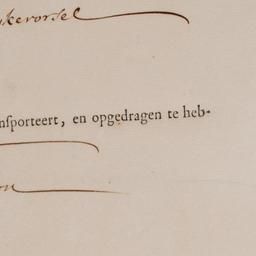 ykevorsel
nsporteert, en opgedragen te heb-
on